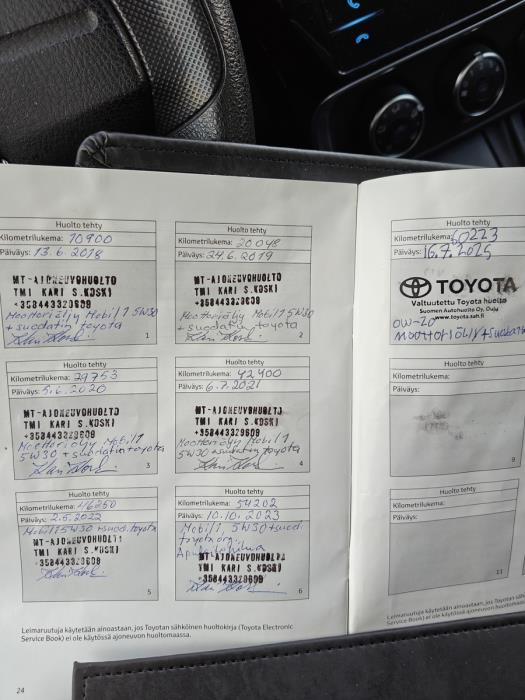 Huolto tehty
Kilometrilukema: 10900
Päiväys: 13.6.2018
MT-AJONEUVOHUOLTO
TMI KARI S.KOSKI
+358443329609
Moottoriöljy Mobil 1 5W30
+ suodatin toyota
1
Huolto tehty
Kilometrilukema: 20048
Päiväys: 24.6.2019
MT-AJONEUVOHUOLTO
TMI KARI S.KOSKI
+358443329609
Moottoriöljy Mobil 1 5W30
+ suodatin toyota
2
Huolto tehty
Kilometrilukema: 29753
Päiväys: 5.6.2020
MT-AJONEUVOHUOLTO
TMI KARI S.KOSKI
+358443329609
Moottoriöljy Mobil 1
5W30 + suodatin toyota
3
Huolto tehty
Kilometrilukema: 42400
Päiväys: 6.7.2021
MT-AJONEUVOHUOLTO
TMI KARI S.KOSKI
+358443329609
Moottoriöljy Mobil 1
5W30 suodatin toyota
4
Huolto tehty
Kilometrilukema: 46250
Päiväys: 2.5.2022
Mobil 1 5W30 + suod. toyota
MT-AJONEUVOHUOLTO
TMI KARI S.KOSKI
+358443329609
5
Huolto tehty
Kilometrilukema: 54202
Päiväys: 10.10.2023
Mobil 1 5W30 + suod
toyota org.
MT-AJONEUVOHUOLTO
TMI KARI S.KOSKI
+358443329609
6
Leimaruutuja käytetään ainoastaan, jos Toyotan sähköinen huoltokirja (Toyota Electronic
Service Book) ei ole käytössä ajoneuvon huoltomaassa.
24
Huolto tehty
Kilometrilukema: 60223
Päiväys: 16.7.2025
TOYOTA
Valtuutettu Toyota huolto
Suomen Autohuolto Oy, Oulu
www.toyota.sah.fi
0W-20
Moottoriöljy + suodatin
Huolto tehty
Kilometrilukema:
Päiväys:
9
Huolto tehty
Kilometrilukema:
Päiväys:
11
Leimaruutuja käytetään ainoastaan, jos Toyotan säh
Service Book) ei ole käytössä ajoneuvon huoltomaa